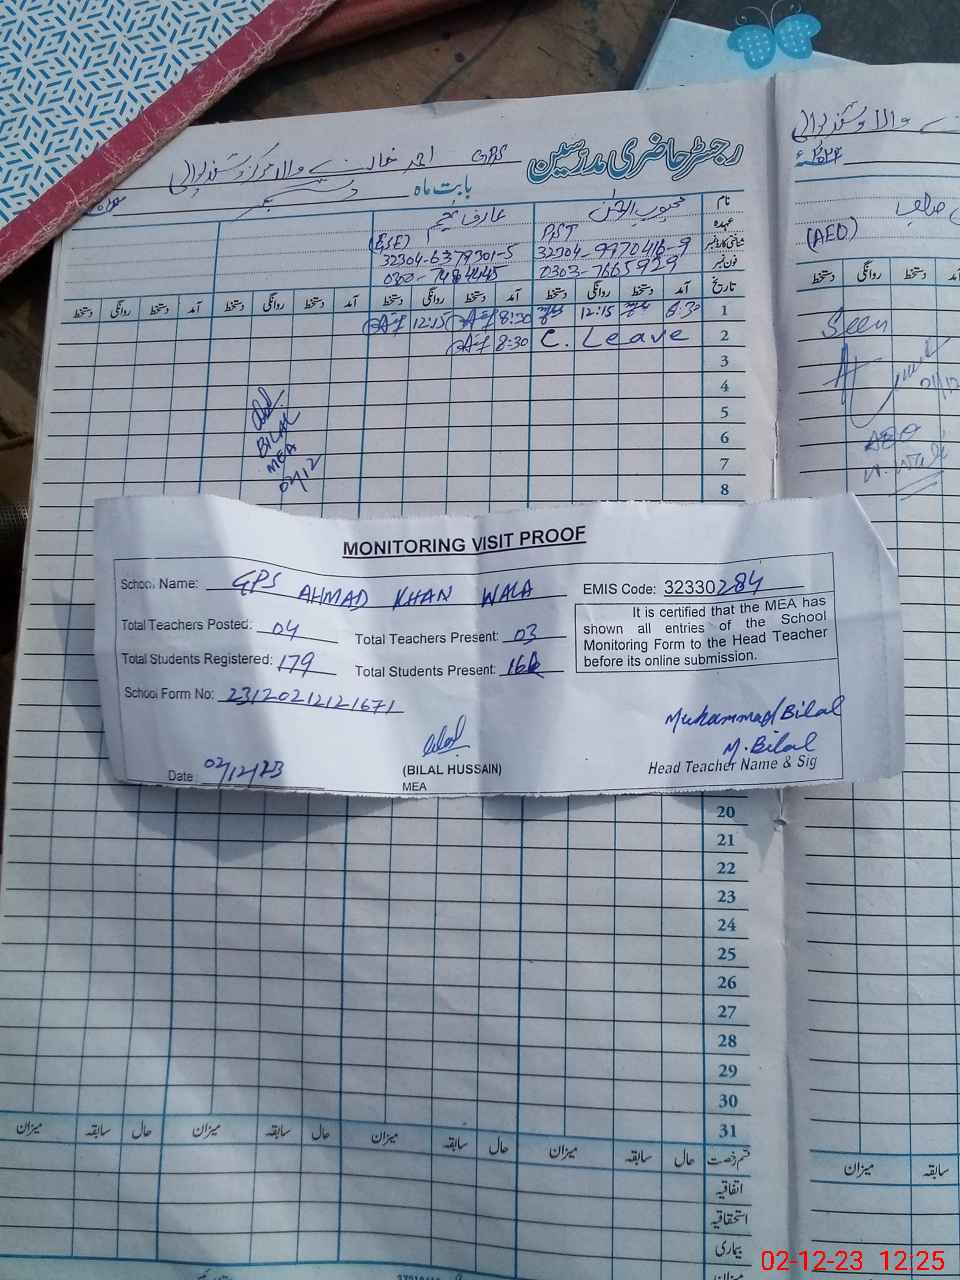 رجسٹر حاضری مدرسین
GPS احمد خان والا مرکز
بابت ماہ دسمبر
نام محبوب الرحمٰن عارف نجم
عہدہ PST (ESE)
شناختی کارڈ نمبر 32304-9970416-9 32304-6379301-5
فون نمبر 0303-7665929
(AEO)
تاریخ آمد دستخط روانگی دستخط آمد دستخط روانگی دستخط آمد دستخط روانگی دستخط آمد دستخط روانگی دستخط
1 8:30 12:15 8:30 12:15
2 C. Leave 8:30
Seen
3
4
5
6
7
8
BILAL
MEA
02/12
AEO
MONITORING VISIT PROOF
School Name: GPS AHMAD KHAN WALA
EMIS Code: 32330284
Total Teachers Posted: 04 Total Teachers Present: 03
Total Students Registered: 179 Total Students Present:
It is certified that the MEA has
shown all entries of the School
Monitoring Form to the Head Teacher
before its online submission.
School Form No: 23120212121671
Muhammad Bilal
M. Bilal
Head Teacher Name & Sig
Date: 02/12/23
(BILAL HUSSAIN)
MEA
20
21
22
23
24
25
26
27
28
29
30
31
قسم رخصت حال سابقہ میزان حال سابقہ میزان حال سابقہ میزان حال سابقہ میزان
اتفاقیہ
استحقاقیہ
بیماری
سابقہ میزان
02-12-23 12:25